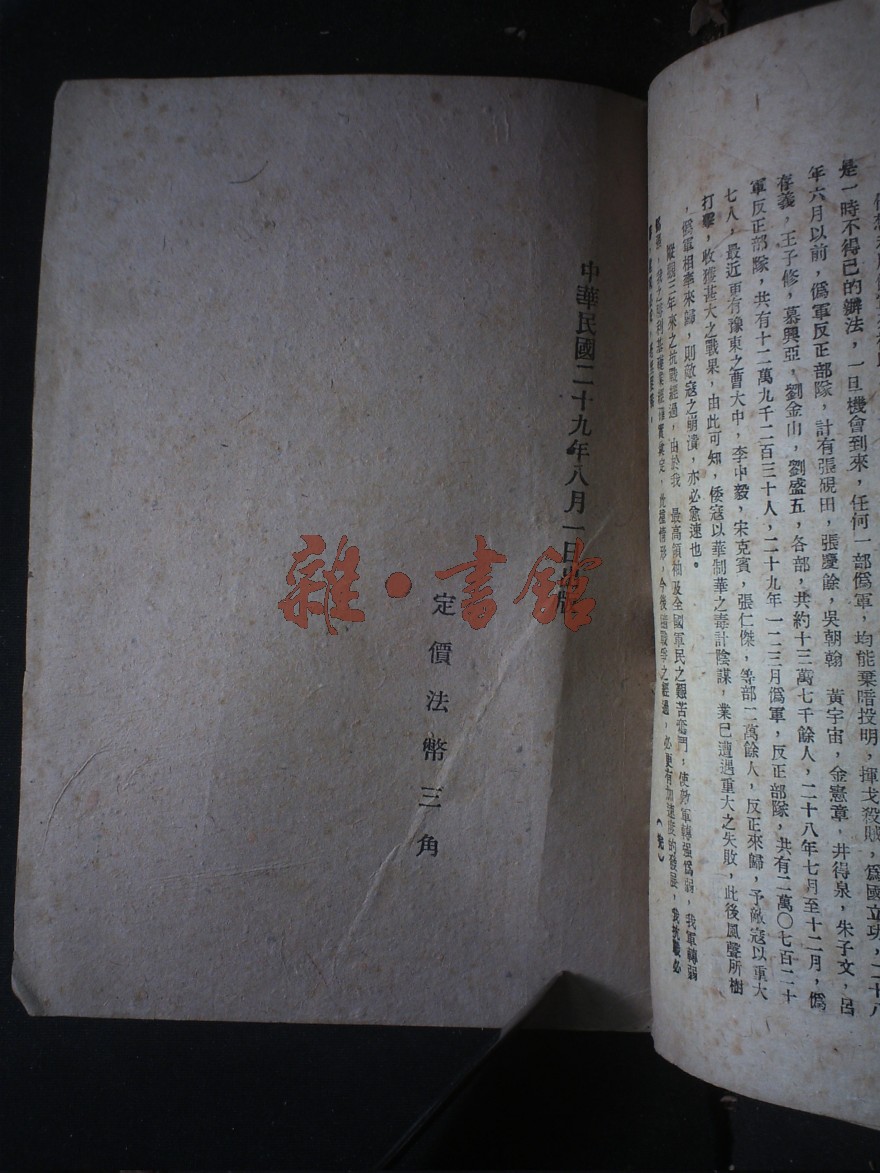 是一時不得已的辦法，一旦機會到來，任何一部僞軍，均能棄暗投明，揮戈殺賊，爲國立功，二十八
年六月以前，僞軍反正部隊，計有張硯田，張慶餘，吳朝翰　黃宇宙，金憲章，井得泉，朱子文，呂
存義，王子修，慕興亞，劉金山，劉盛五，各部，共約十三萬七千餘人，二十八年七月至十二月，僞
軍反正部隊，共有十二萬九千二百三十人，二十九年一二三月僞軍，反正部隊，共有二萬〇七百二十
七人，最近更有豫東之曹大中，李中毅，宋克賓，張仁傑，等部二萬餘人，反正來歸，予敵寇以重大
打擊，收獲甚大之戰果，由此可知，倭寇以華制華之毒計陰謀，業已遭遇重大之失敗，此後風聲所樹
，僞軍相率來歸，則敵寇之崩潰，亦必愈速也。
縱觀三年來之抗戰經過，由於我　最高領袖及全國軍民之艱苦奮鬥，使敵軍轉强爲弱，我軍轉弱
爲强，我之勝利基礎業經確實奠定，此種情形，今後隨戰爭之經過，必更有加速度的發展，我抗戰必
（完）
中華民國二十九年八月一日出版
定價法幣三角
雜·書館